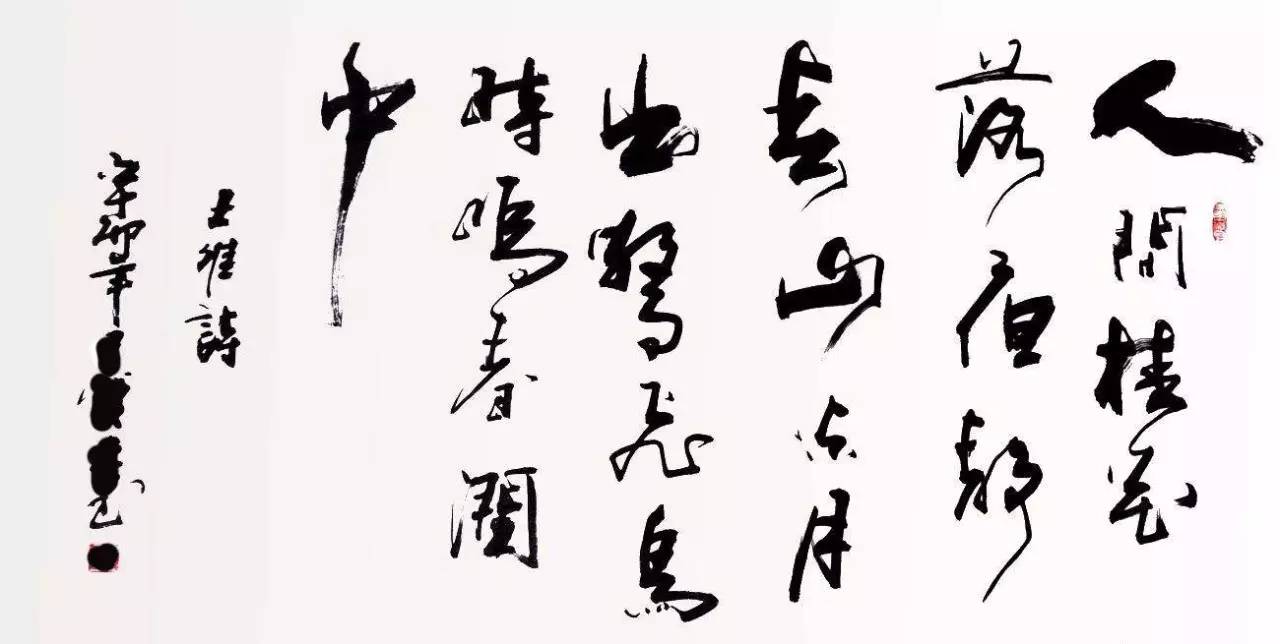 人間桂花
落夜静
春山空月
出驚飛鳥
時鳴春潤
中
王維詩
辛卯年